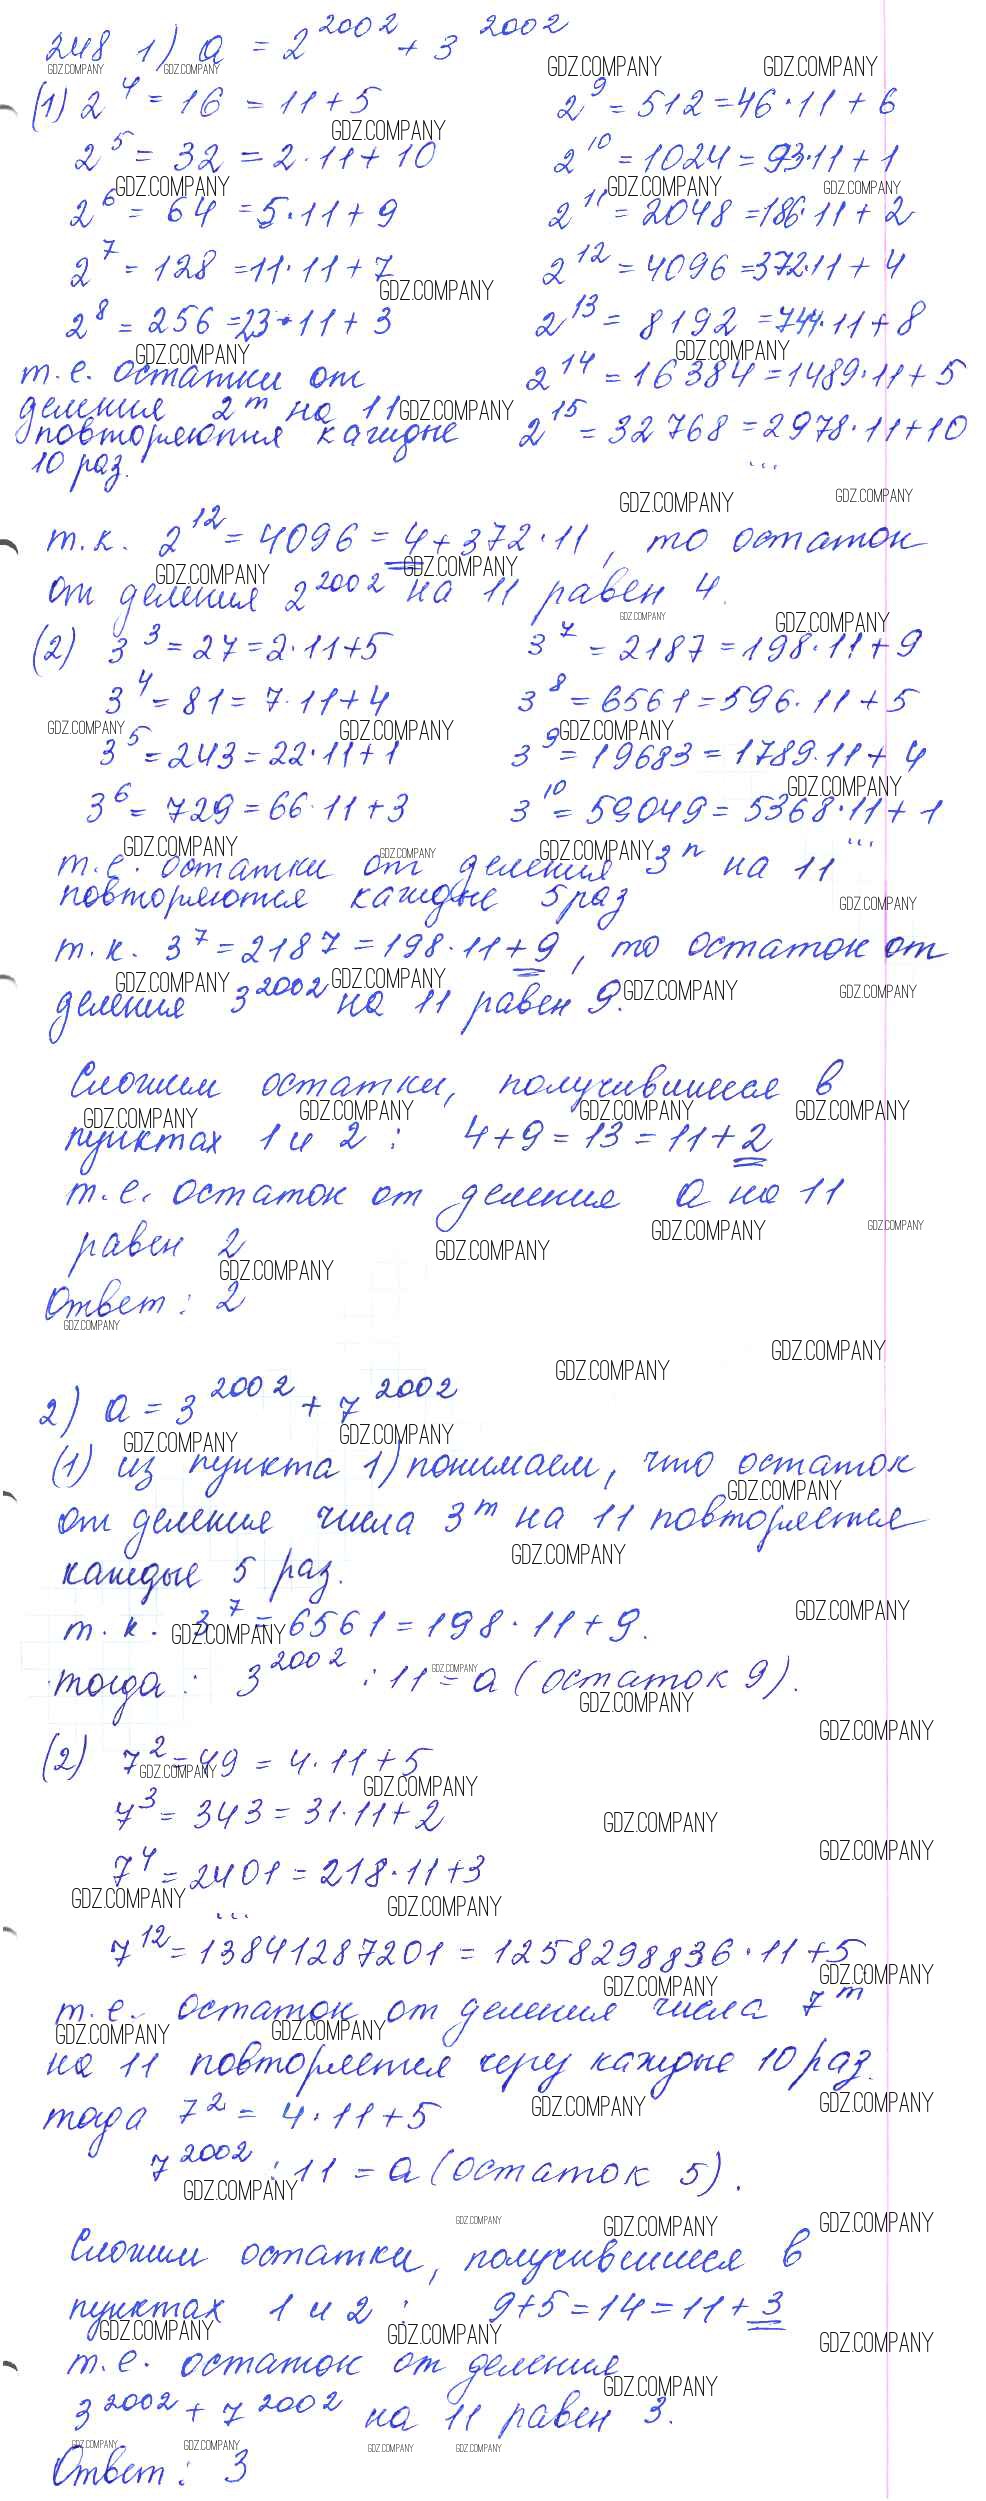 248 1) a = 2^2002 + 3^2002
(1) 2^4 = 16 = 11 + 5
2^5 = 32 = 2·11 + 10
2^6 = 64 = 5·11 + 9
2^7 = 128 = 11·11 + 7
2^8 = 256 = 23·11 + 3
т.е. остатки от
деления 2^m на 11
повторяются каждые
10 раз.
2^9 = 512 = 46·11 + 6
2^10 = 1024 = 93·11 + 1
2^11 = 2048 = 186·11 + 2
2^12 = 4096 = 372·11 + 4
2^13 = 8192 = 744·11 + 8
2^14 = 16384 = 1489·11 + 5
2^15 = 32768 = 2978·11 + 10
...
т.к. 2^12 = 4096 = 4 + 372·11, то остаток
от деления 2^2002 на 11 равен 4.
(2) 3^3 = 27 = 2·11 + 5
3^4 = 81 = 7·11 + 4
3^5 = 243 = 22·11 + 1
3^6 = 729 = 66·11 + 3
3^7 = 2187 = 198·11 + 9
3^8 = 6561 = 596·11 + 5
3^9 = 19683 = 1789·11 + 4
3^10 = 59049 = 5368·11 + 1
...
т.е. остатки от деления 3^n на 11
повторяются каждые 5 раз
т.к. 3^7 = 2187 = 198·11 + 9, то остаток от
деления 3^2002 на 11 равен 9.
Сложим остатки, получившиеся в
пунктах 1 и 2: 4 + 9 = 13 = 11 + 2
т.е. остаток от деления a на 11
равен 2
Ответ: 2
2) a = 3^2002 + 7^2002
(1) из пункта 1) понимаем, что остаток
от деления числа 3^m на 11 повторяется
каждые 5 раз.
т.к. 3^7 = 6561 = 198·11 + 9.
тогда: 3^2002 : 11 = a (остаток 9).
(2) 7^2 = 49 = 4·11 + 5
7^3 = 343 = 31·11 + 2
7^4 = 2401 = 218·11 + 3
...
7^12 = 13841287201 = 1258298836·11 + 5
т.е. остаток от деления числа 7^m
на 11 повторяется через каждые 10 раз.
тогда 7^2 = 4·11 + 5
7^2002 : 11 = a (остаток 5).
Сложим остатки, получившиеся в
пунктах 1 и 2: 9 + 5 = 14 = 11 + 3
т.е. остаток от деления
3^2002 + 7^2002 на 11 равен 3.
Ответ: 3
GDZ.COMPANY